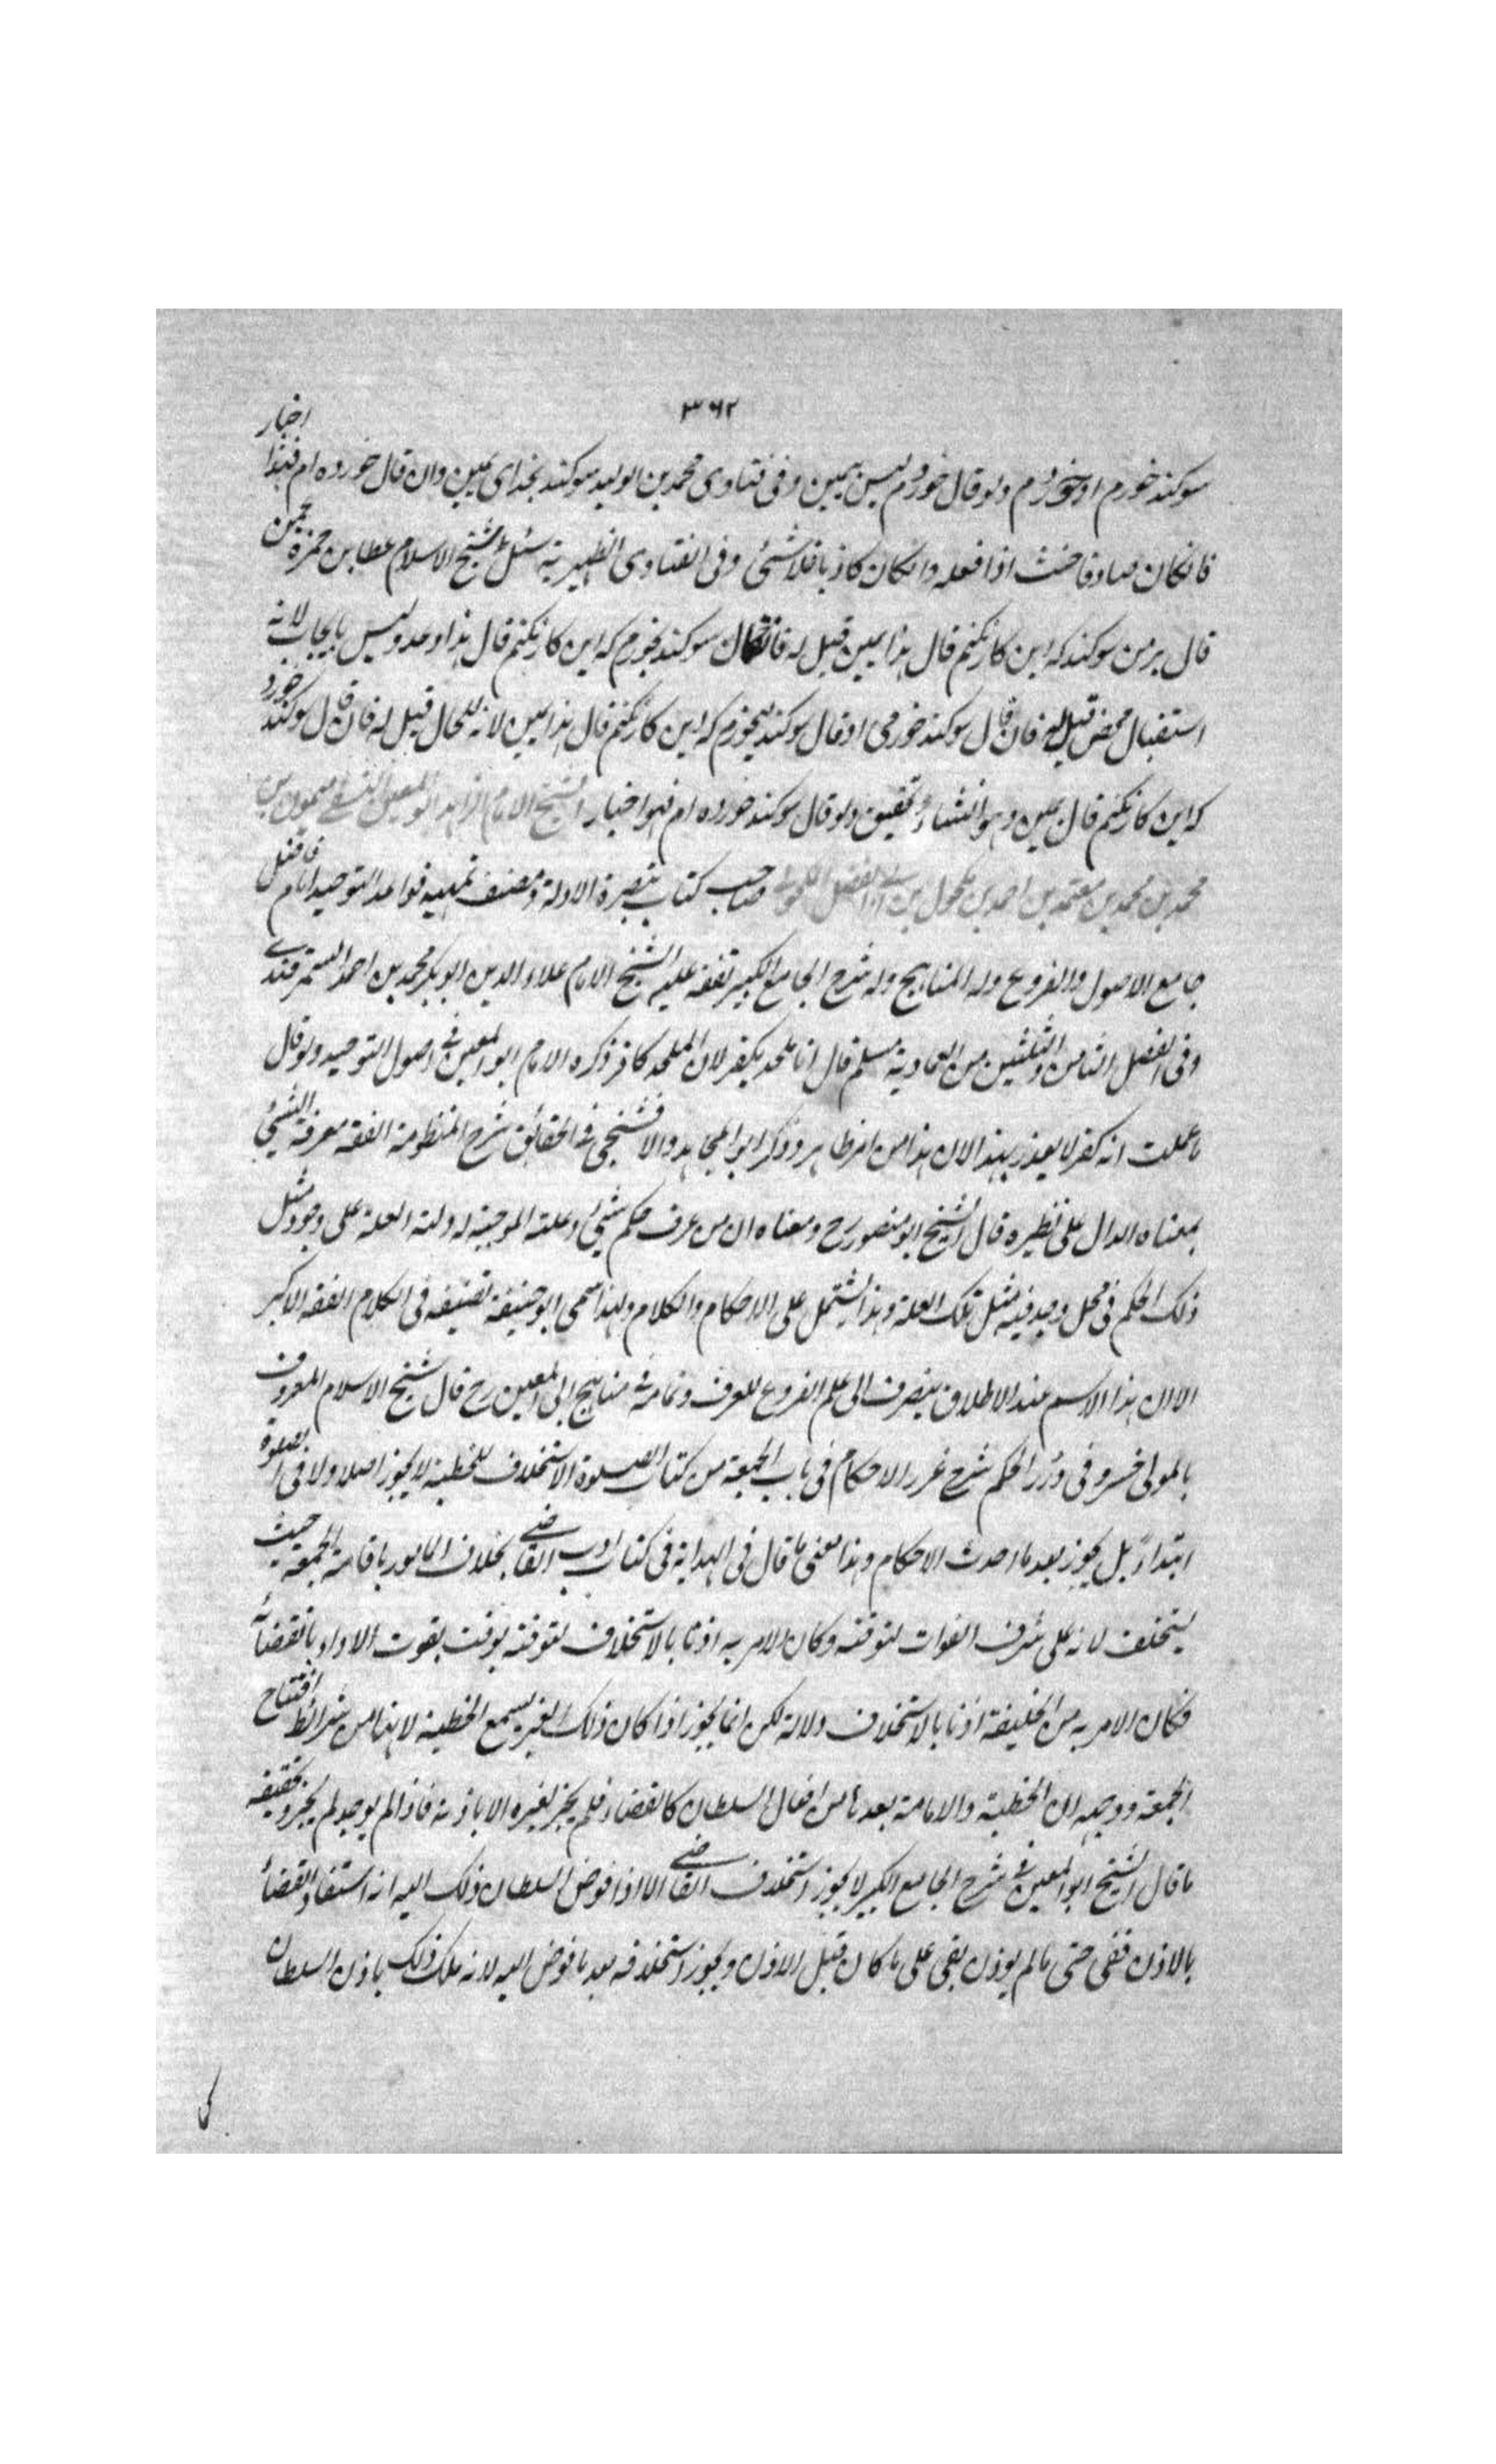 ٣٦٢
سوكند خورم او خوردم ولو قال خوردم ليس بيمين وفى فتاوى محمد بن الوليد سوكند بخداى يمين وان قال خورده ام فهذا اخبار
فانكان صادقا حنث اذا فعله وانكان كاذبا فلا شئ وفى الفتاوى الظهيرية سئل شيخ الاسلام عطا بن حمزة عمن
قال بر من سوكند كه اين كار نكنم قال هذا يمين قيل له فان قال سوكند بخورم كه اين كار نكنم قال هذا وعد وليس بايجاب لانه
استقبال محض قيل له فان قال سوكند خورمى او قال سوكند ميخورم كه اين كار نكنم قال هذا يمين لانه للحال قيل له فان قال سوكند خورد
كه اين كار نكنم قال يمين وهو انشاء تحقيق ولو قال سوكند خورده ام فهو اخبار الشيخ الامام الزاهد ابو المعين النسفى ميمون بن
محمد بن محمد بن معتمد بن احمد بن مكحول بن ابى الفضل المكحولى صاحب كتاب تبصرة الادلة ومصنف تمهيد قواعد التوحيد امام فاضل
جامع الاصول والفروع وله المناهج وله شرح الجامع الكبير تفقه عليه الشيخ الامام علاء الدين ابو بكر محمد بن احمد السمرقندى
وفى الفصل الثامن والثلثين من العمادية مسلم قال انا ملحد يكفر لان الملحد كافر ذكره الامام ابو المعين فى اصول التوحيد ولو قال
ما علمت انه كفر لا يعذر بهذا لان هذا امر ظاهر وذكر ابو المحامد والافشنجى فى الحقائق شرح المنظومة الفقه معرفة الشئ
بمعناه الدال على نظيره قال الشيخ ابو منصور رح ومعناه ان من عرف حكم شئ وعلته الموجبة له دلته العلة على وجود مثل
ذلك الحكم فى محل وجد فيه مثل تلك العلة وهذا يشتمل على الاحكام والكلام ولهذا سمى ابو حنيفة تصنيفه فى الكلام الفقه الاكبر
الا ان هذا الاسم عند الاطلاق ينصرف الى علم الفروع للعرف وتمامه فى مناهج ابى المعين رح قال شيخ الاسلام المعروف
بالمولى خسرو فى درر الحكم شرح غرر الاحكام فى باب الجمعة من كتاب الصلوة الاستخلاف للخطبة لا يجوز اصلا ولا فى الصلوة
ابتداء بل يجوز بعد ما احدث الامام وهذا معنى ما قال فى الهداية فى كتاب ادب القاضى بخلاف المامور باقامة الجمعة حيث
يستخلف لانه على شرف الفوات لتوقته وكان الامر به اذنا بالاستخلاف لتوقته بوقت بفوت الاداء بانقضائه
فكان الامر به من الخليفة اذنا بالاستخلاف دلالة لكن انما يجوز اذا كان ذلك الغير يسمع الخطبة لانها من شرائط افتتاح
الجمعة ووجهه ان الخطبة والامامة بعدها من افعال السلطان كالقضاء فلم يجز لغيره الا باذنه فاذا لم يوجد لم يجز وتحقيقه
ما قال الشيخ ابو المعين فى شرح الجامع الكبير لا يجوز استخلاف القاضى الا اذا فوض السلطان ذلك اليه انه استفاد القضاء
بالاذن ففى حق ما لم يؤذن بقى على ما كان قبل الاذن ويجوز استخلافه بعد ما فوض اليه لانه ملك ذلك باذن السلطان